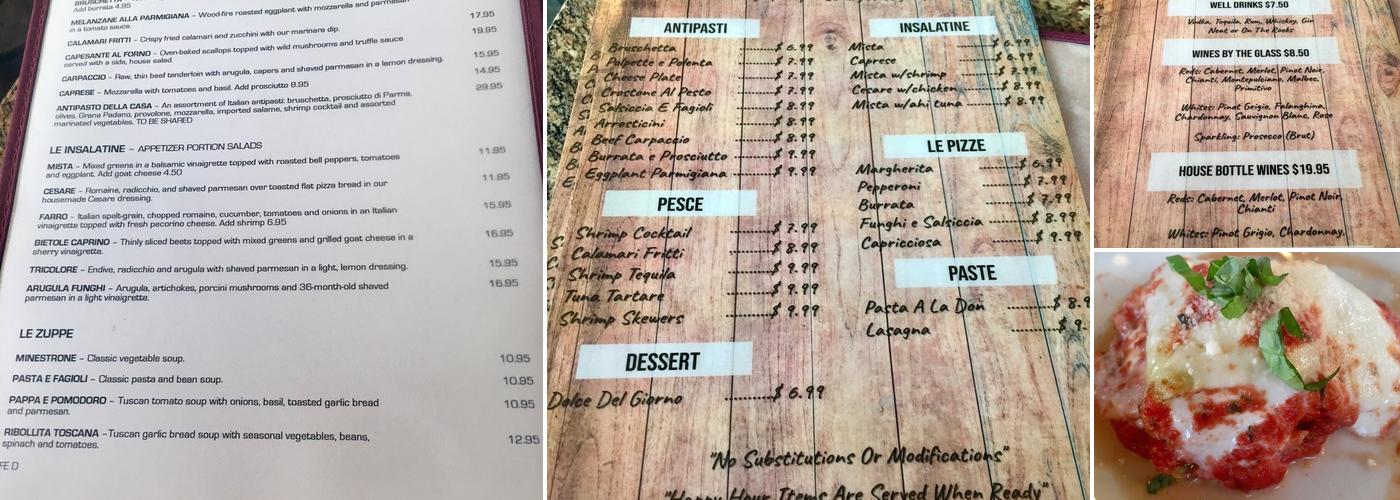 BRUSCHETTA
Add burrata 4.95
MELANZANE ALLA PARMIGIANA – Wood-fire roasted eggplant with mozzarella and parmesan
in a tomato sauce. 17.95
CALAMARI FRITTI – Crispy fried calamari and zucchini with our marinara dip. 19.95
CAPESANTE AL FORNO – Oven-baked scallops topped with wild mushrooms and truffle sauce
served with a side, house salad.
CARPACCIO – Raw, thin beef tenderloin with arugula, capers and shaved parmesan in a lemon dressing. 15.95
CAPRESE – Mozzarella with tomatoes and basil. Add prosciutto 8.95 14.95
ANTIPASTO DELLA CASA – An assortment of Italian antipasti: bruschetta, prosciutto di Parma, 29.95
olives, Grana Padano, provolone, mozzarella, imported salame, shrimp cocktail and assorted
marinated vegetables. TO BE SHARED
LE INSALATINE – APPETIZER PORTION SALADS
MISTA – Mixed greens in a balsamic vinaigrette topped with roasted bell peppers, tomatoes 11.95
and eggplant. Add goat cheese 4.50
CESARE – Romaine, radicchio, and shaved parmesan over toasted flat pizza bread in our 11.95
housemade Cesare dressing.
FARRO – Italian spelt-grain, chopped romaine, cucumber, tomatoes and onions in an Italian 15.95
vinaigrette topped with fresh pecorino cheese. Add shrimp 6.95
BIETOLE CAPRINO – Thinly sliced beets topped with mixed greens and grilled goat cheese in a 16.95
sherry vinaigrette.
TRICOLORE – Endive, radicchio and arugula with shaved parmesan in a light, lemon dressing. 15.95
ARUGULA FUNGHI – Arugula, artichokes, porcini mushrooms and 36-month-old shaved 16.95
parmesan in a light vinaigrette.
LE ZUPPE
MINESTRONE – Classic vegetable soup. 10.95
PASTA E FAGIOLI – Classic pasta and bean soup. 10.95
PAPPA E POMODORO – Tuscan tomato soup with onions, basil, toasted garlic bread 10.95
and parmesan.
RIBOLLITA TOSCANA –Tuscan garlic bread soup with seasonal vegetables, beans, 12.95
spinach and tomatoes.
ANTIPASTI
Bruschetta ........$ 6.99
Polpette e Polenta ........$ 7.99
Cheese Plate ........$ 7.99
Crostone Al Pesto ........$ 7.99
Salsiccia E Fagioli ........$ 8.99
Arrosticini ........$ 8.99
Beef Carpaccio ........$ 8.99
Burrata e Prosciutto ........$ 9.99
Eggplant Parmigiana ........$ 9.99
PESCE
Shrimp Cocktail ........$ 7.99
Calamari Fritti ........$ 8.99
Shrimp Tequila ........$ 9.99
Tuna Tartare ........$ 9.99
Shrimp Skewers ........$ 9.99
DESSERT
Dolce Del Giorno ........$ 6.99
INSALATINE
Mista ........$ 6.99
Caprese ........$ 6.99
Mista w/shrimp ........$ 7.99
Cesare w/chicken ........$ 8.99
Mista w/ahi tuna ........$ 8.99
LE PIZZE
Margherita ........$ 6.99
Pepperoni ........$ 7.99
Burrata ........$ 7.99
Funghi e Salsiccia ........$ 8.99
Capricciosa ........$ 9.99
PASTE
Pasta A La Don ........$ 8.9
Lasagna ........$ 9.
"No Substitutions Or Modifications"
"Happy Hour Items Are Served When Ready"
WELL DRINKS $7.50
Vodka, Tequila, Rum, Whiskey, Gin
Neat or On The Rocks
WINES BY THE GLASS $8.50
Reds: Cabernet, Merlot, Pinot Noir,
Chianti, Montepulciano, Malbec,
Primitivo
Whites: Pinot Grigio, Falanghina,
Chardonnay, Sauvignon Blanc, Rose
Sparkling: Prosecco (Brut)
HOUSE BOTTLE WINES $19.95
Reds: Cabernet, Merlot, Pinot Noir,
Chianti
Whites: Pinot Grigio, Chardonnay,